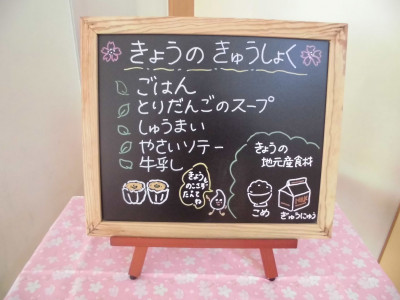 きょうの きゅうしょく
ごはん
とりだんごのスープ
しゅうまい
やさいソテー
牛乳し
きょうの
地元産食材
こめ
ぎゅうにゅう
きょうも
のこさず
たべて
や